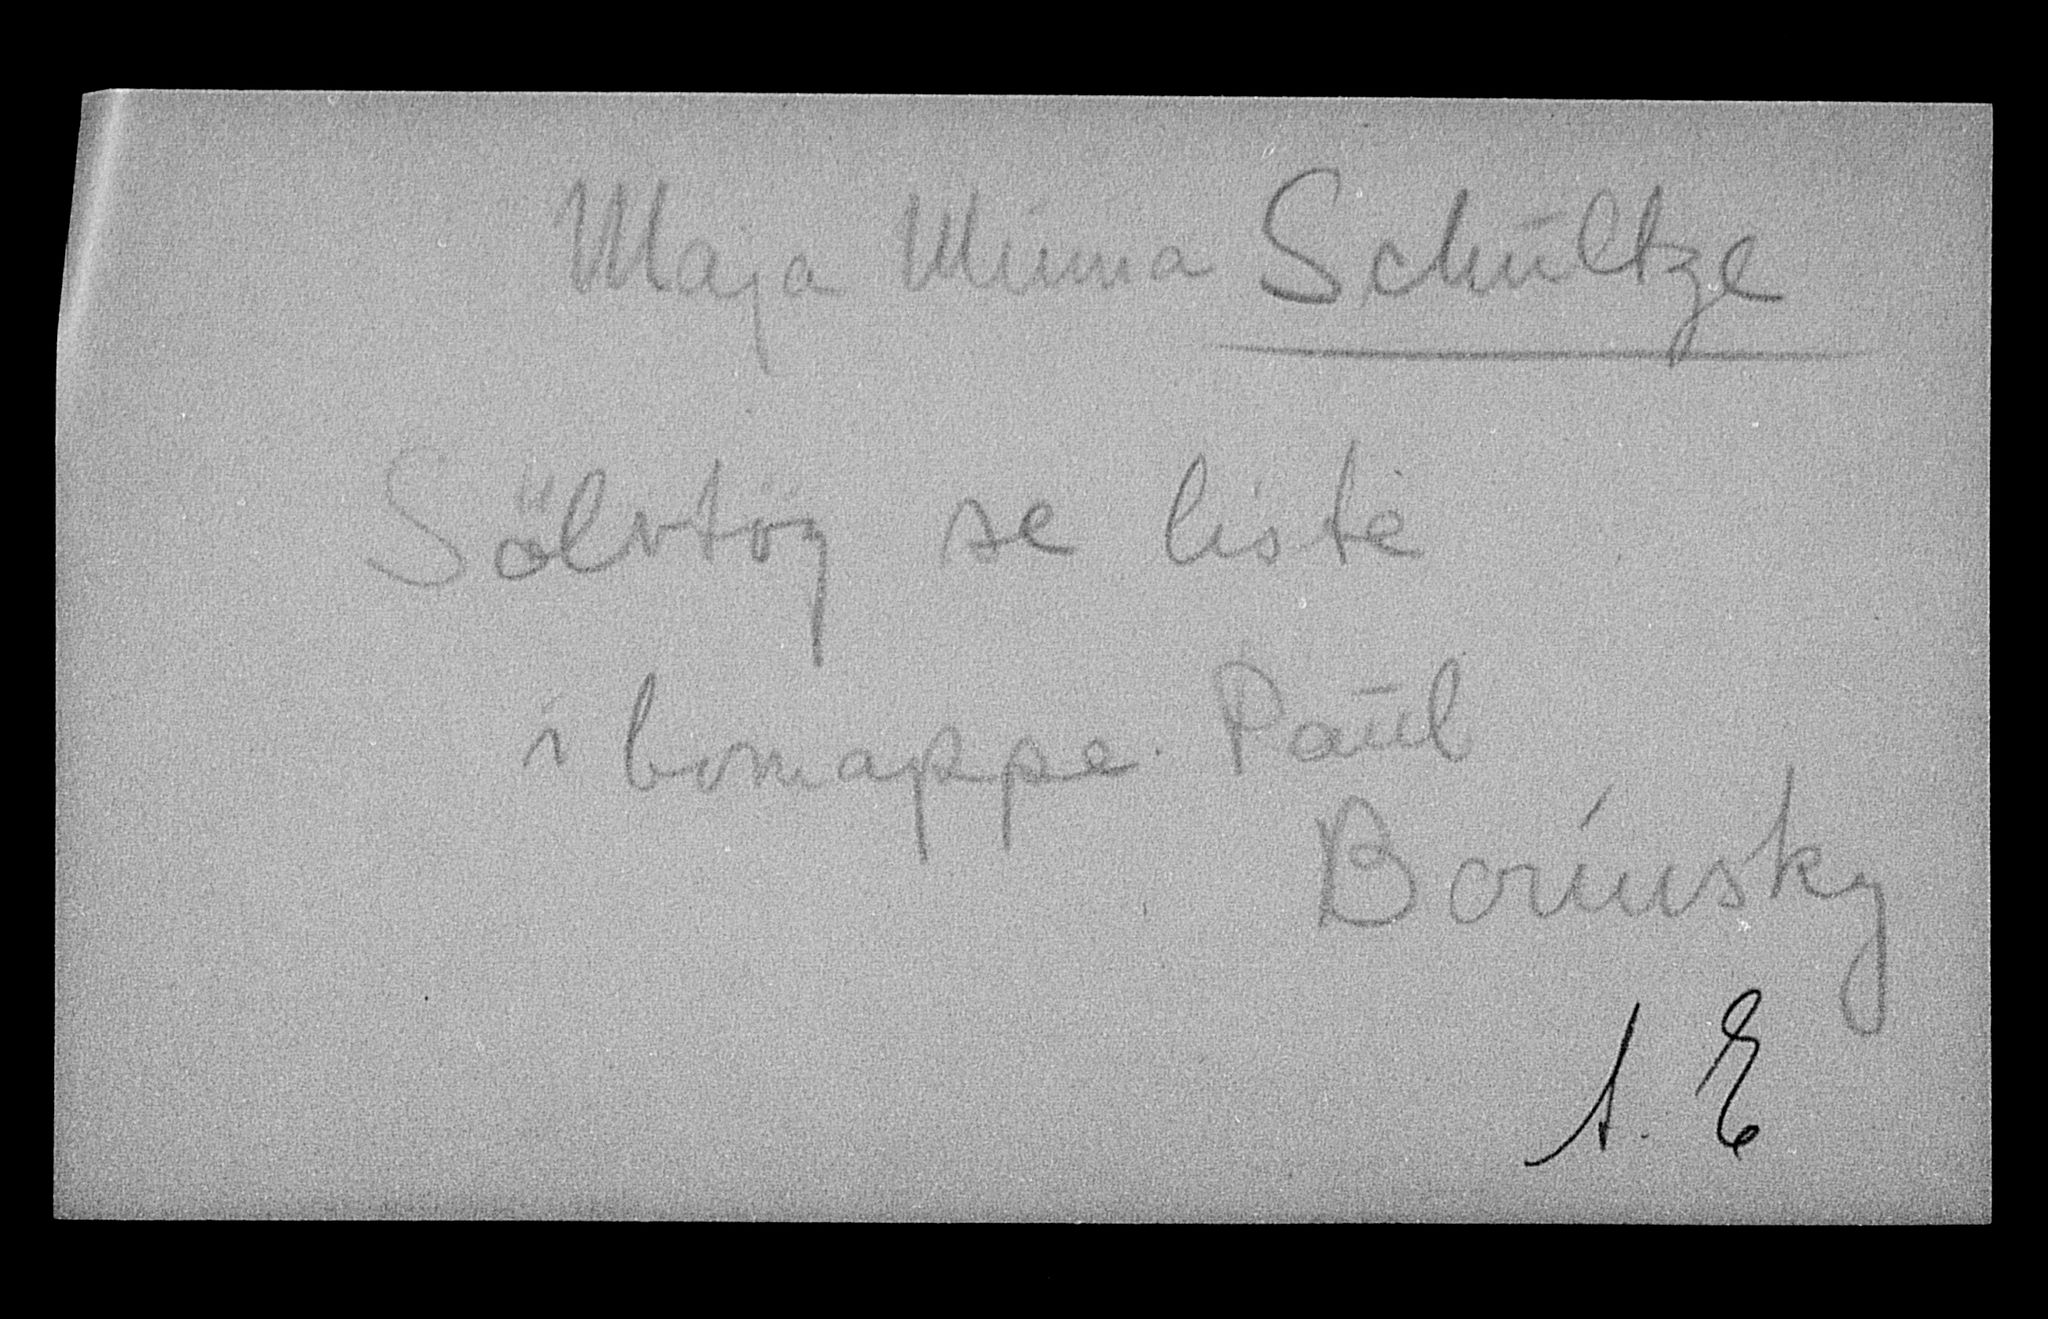 Maja Minna Schultze
Sölvtöy se liste
i bomappe. Paul
Borinsky
s. E